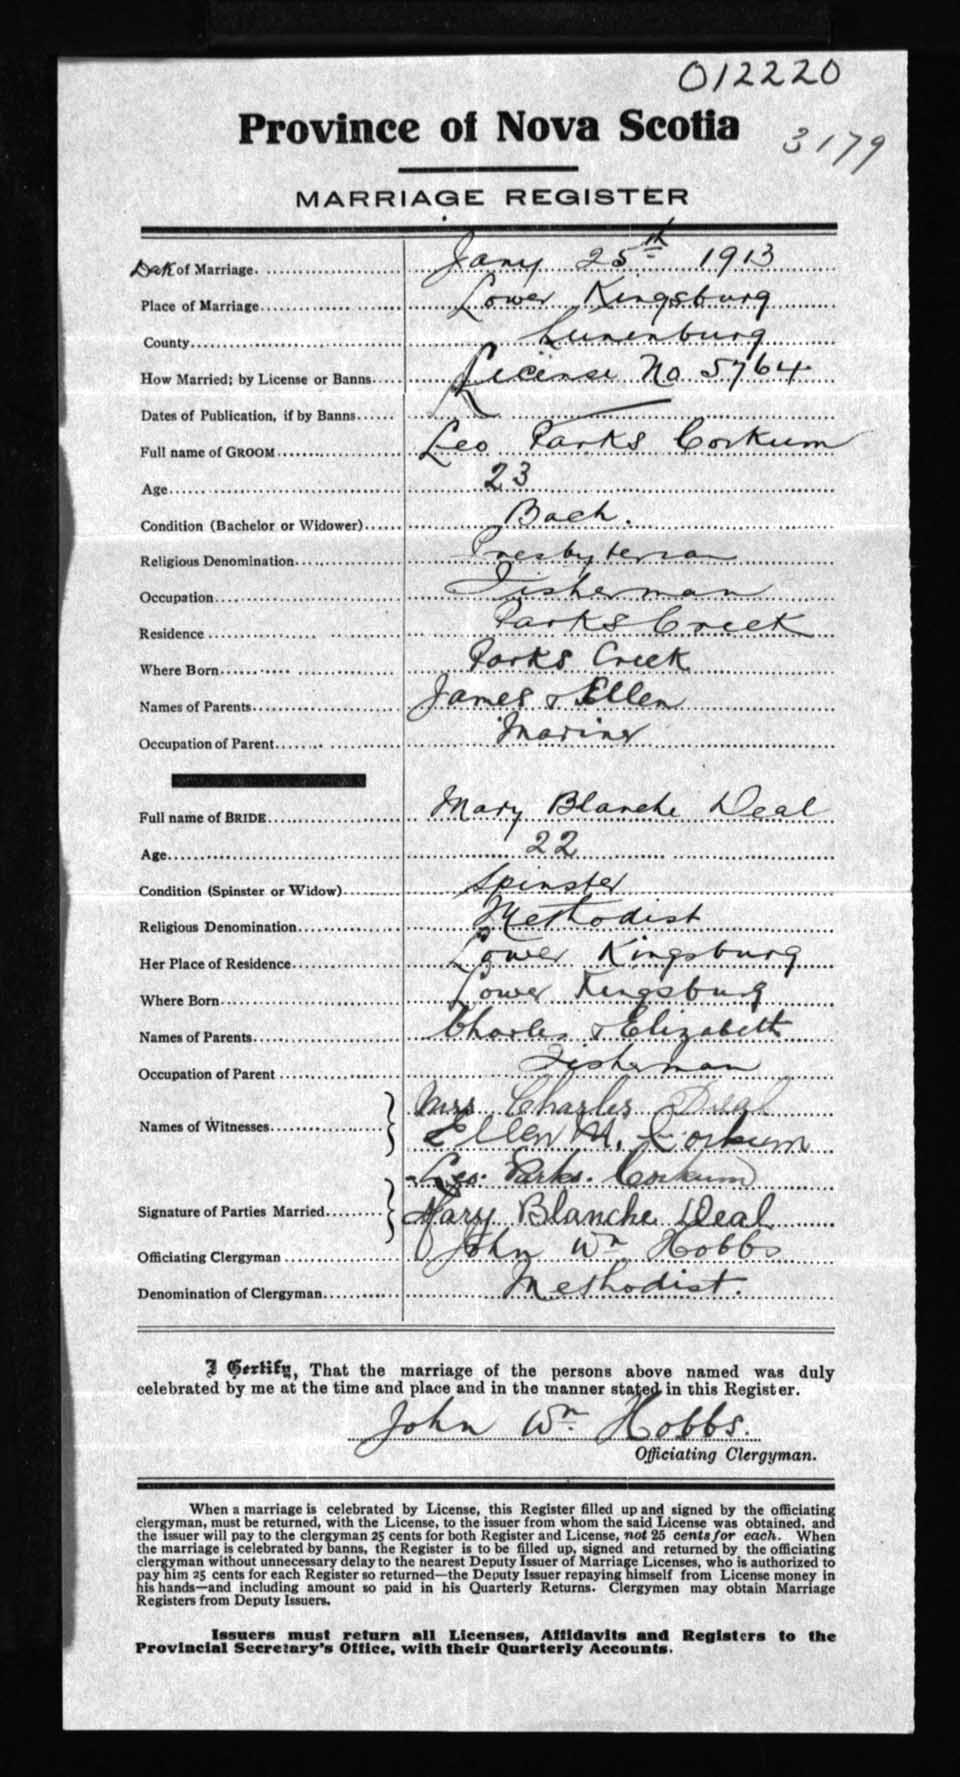 012220
Province of Nova Scotia
3179
MARRIAGE REGISTER
Date of Marriage. Jany 25th 1913
Place of Marriage Lower Kingsburg
County Lunenburg
How Married; by License or Banns License No 5764
Dates of Publication, if by Banns
Full name of GROOM Leo Parks Corkum
Age 23
Condition (Bachelor or Widower) Bach.
Religious Denomination Presbyterian
Occupation Fisherman
Residence Parks Creek
Where Born Parks Creek
Names of Parents James & Ellen
Occupation of Parent Mariner
Full name of BRIDE Mary Blanche Deal
Age 22
Condition (Spinster or Widow) Spinster
Religious Denomination Methodist
Her Place of Residence Lower Kingsburg
Where Born Lower Kingsburg
Names of Parents Charles & Elizabeth
Occupation of Parent Fisherman
Names of Witnesses Mrs Charles Deal
Ellen M. Corkum
Signature of Parties Married Leo. Parks. Corkum
Mary Blanche Deal
Officiating Clergyman John Wm Hobbs
Denomination of Clergyman Methodist.
I Certify, That the marriage of the persons above named was duly
celebrated by me at the time and place and in the manner stated in this Register.
John Wm Hobbs.
Officiating Clergyman.
When a marriage is celebrated by License, this Register filled up and signed by the officiating
clergyman, must be returned, with the License, to the issuer from whom the said License was obtained, and
the issuer will pay to the clergyman 25 cents for both Register and License, not 25 cents for each. When
the marriage is celebrated by banns, the Register is to be filled up, signed and returned by the officiating
clergyman without unnecessary delay to the nearest Deputy Issuer of Marriage Licenses, who is authorized to
pay him 25 cents for each Register so returned—the Deputy Issuer repaying himself from License money in
his hands—and including amount so paid in his Quarterly Returns. Clergymen may obtain Marriage
Registers from Deputy Issuers.
Issuers must return all Licenses, Affidavits and Registers to the
Provincial Secretary's Office, with their Quarterly Accounts.